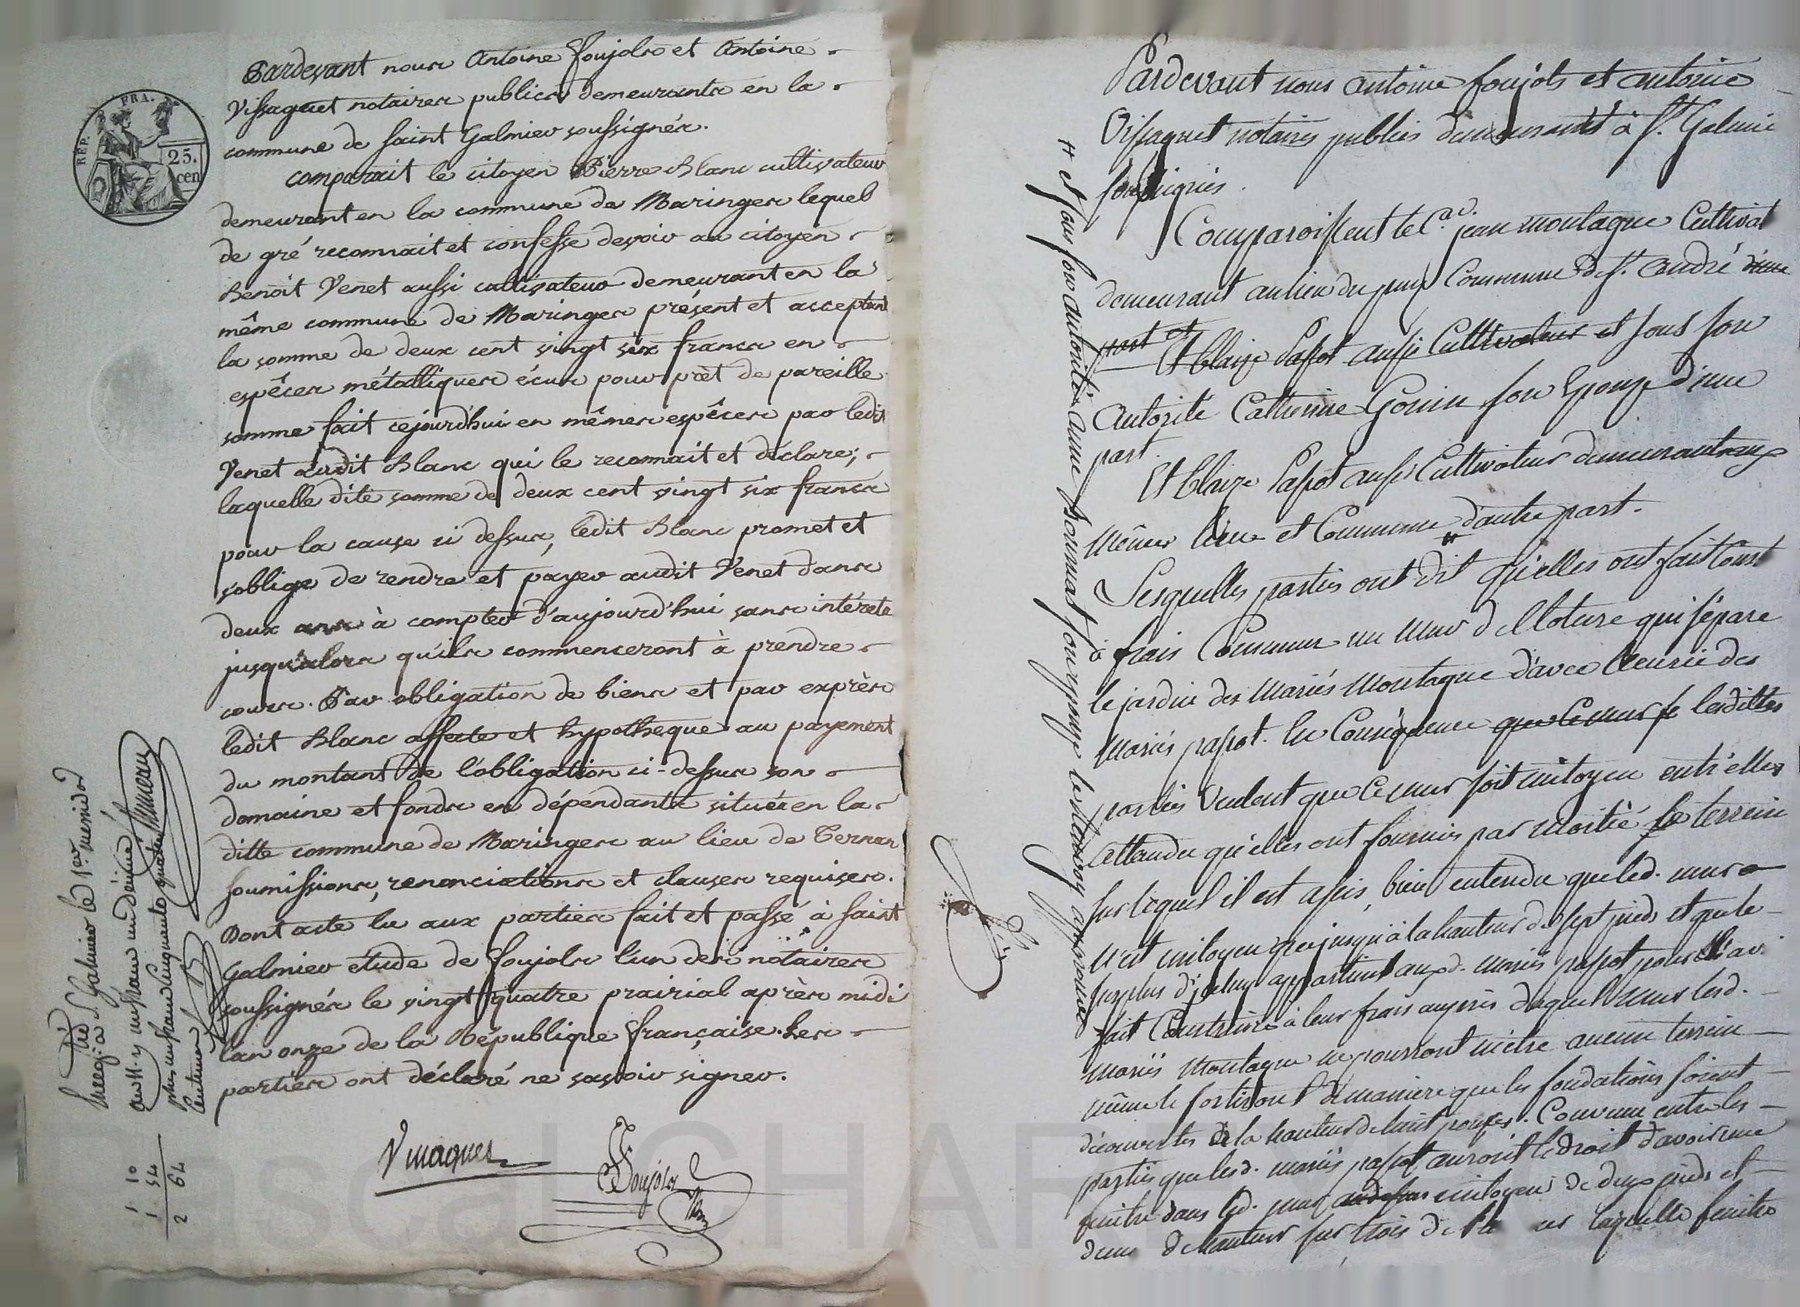 Pardevant nous Antoine Foujols et Antoine
Vissaguet notaires publics demeurants en la
commune de saint Galmier soussignés.
comparait le citoyen Pierre Blanc cultivateur
demeurant en la commune de Maringes lequel
de gré reconnait et confesse devoir au citoyen
Benoit Venet aussi cultivateur demeurant en la
même commune de Maringes présent et acceptant
la somme de deux cent vingt six francs en
espêces métalliques écus pour prêt de pareille
somme fait cejourd'hui en mêmes espêces par ledit
Venet audit Blanc qui le reconnait et déclare;
laquelle dite somme de deux cent vingt six francs
pour la cause ci dessus, ledit Blanc promet et
s'oblige de rendre et payer audit Venet dans
deux ans à compter d'aujourd'hui sans intérets
jusqu'alors qu'ils commenceront à prendre
cours. Par obligation de biens et par exprès
ledit Blanc affecte et hypotheque au payement
du montant de l'obligation ci-dessus son
domaine et fonds en dépendants situés en la
ditte commune de Maringes au lieu de
soumissions, renonciations et clauses requises.
Dont acte lu aux parties fait et passé à saint
Galmier etude de Foujols l'un des notaires
soussignés le vingt quatre prairial après midi
l'an onze de la République française. Les
parties ont déclaré ne savoir signer.
Foujols
RÉP. FRA.
25.
cen
à St Galmier le 1er messidor
an 11 un franc un décime
plus un franc cinquante quatre
centimes
1 10
1 54
2 64
Pardevant nous antoine foujols et antoine
Vissaguet notaires publics demeurants à St. Galmier
soussignés.
Comparoissent le Cn. jean montagne Cultivat
demeurant au lieu du puy Commune de St. andré d'une
part et
Et Claize Papot aussi Cultivateur et sous son
autorité Catherine Gonin son Epouze d'une
part.
Et Claize Papot aussi Cultivateur demeurant aux
mêmes lieu et Commune d'autre part.
Lesquelles parties ont dit qu'elles ont fait Const
à frais Commun un mur de Cloture qui sépare
le jardin des mariés Montagne d'avec l'ecurie des
Mariés papot. En Conséquence que ce mur se lesdittes
parties Veulent que ce mur soit mitoyen entr'elles
attendu qu'elles ont fourni par moitié le terrein
sur lequel il est assis, bien entendu que led. mur
n'est mitoyen que jusqu'à la hauteur de sept pieds et que le
surplus d'icelui appartient auxd. mariés papot pour l'av
fait Construire à leur frais auprès duquel mur lesd.
mariés Montagne ne pourront mètre aucun terrein
de maniere que les fondations soient
découvertes de la hauteur de huit pouces. Convenu entre les
parties que lesd. mariés papot auront le droit d'avoir une
fenitre dans led. mur mitoyen de deux pieds et
demi de hauteur sur trois de laquelle fenitre
et sous son autorité anne son epouze